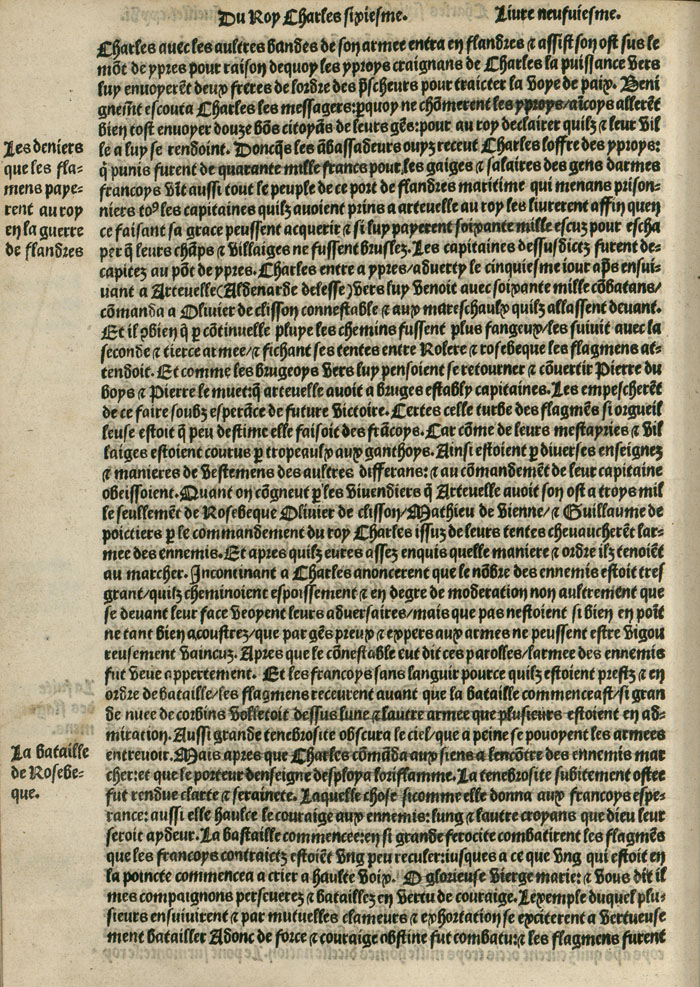 Du Roy Charles sixiesme. Liure neufuiesme.
Charles auec les aultres bandes de son armee entra en flandres ⁊ assist son ost sus le
mõt de ypres pour raison dequoy les yproys craignans de Charles la puissance vers
luy enuoyerẽt deux freres de lordre des p̃scheurs pour traicter la voye de paix. Beni
gnemẽt escouta Charles les messagers: p̱quoy ne chõmerent les yproys/aĩcoys allerẽt
bien tost enuoyer douze bõs citoyẽs de leurs gẽs: pour au roy declairer quilz ⁊ leur vil
le a luy se rendoint. Doncq̃s les ãbassadeurs ouyz receut Charles loffre des yproys:
q̃ punis furent de quarante mille francs pour les gaiges ⁊ salaires des gens darmes
francoys Vit aussi tout le peuple de ce port de flandres maritime qui menans prison-
niers toꝰ les capitaines quilz auoient prins a arteuelle au roy les liurerent affin quen
ce faisant sa grace peussent acquerir ⁊ si luy payerent soixante mille escuz pour escha
per q̃ leurs chãps ⁊ villaiges ne fussent bruslez. Les capitaines dessusdictz furent de-
capitez au põt de ypres. Charles entre a ypres/aduerty le cinquiesme iour ap̃s ensui-
uant a Arteuelle (Aldenarde delesse) vers luy venoit auec soixante mille cõbatans/
cõmanda a Oliuier de clisson connestable ⁊ aux mareschaulx quilz allassent deuant.
Et il ꝯbien q̃ p̱ cõtinuelle pluye les chemins fussent plus fangeux/les suiuit auec la
seconde ⁊ tierce armee/⁊ fichant ses tentes entre Rolere ⁊ rosebeque les flagmens at-
tendoit. Et comme les brugeoys vers luy pensoient se retourner ⁊ cõuertir Pierre du
boys ⁊ Pierre le muet: q̃ arteuelle auoit a bruges estably capitaines. Les empescherẽt
de ce faire soubz esperãce de future victoire. Certes celle turbe des flagmẽs si orgueil
leuse estoit q̃ peu destime elle faisoit des frãcoys. Car cõme de leurs mestayries ⁊ vil
laiges estoient courus p̱ tropeaulx aux ganthoys. Ainsi estoient p̱ diuerses enseignez
⁊ manieres de vestemens des aultres differans: ⁊ au cõmandemẽt de leur capitaine
obeissoient. Quant on cõgneut p̱ les viuendiers q̃ Arteuelle auoit son ost a troys mil
le seullemẽt de Rosebeque Oliuier de clisson/Mathieu de vienne/⁊ Guillaume de
poictiers p̱ le commandement du roy Charles issuz de leurs tentes cheuaucherẽt lar-
mee des ennemis. Et apres quilz eures assez enquis quelle maniere ⁊ ordre ilz tenoiẽt
au marcher. Incontinant a Charles anoncerent que le nõbre des ennemis estoit tres
grant/quilz cheminoient espoissement ⁊ en degre de moderation non aultrement que
se deuant leur face veoyent leurs aduersaires/mais que pas nestoient si bien en point
ne tant bien acoustrez/que par gẽs preux ⁊ expers aux armes ne peussent estre vigou
reusement vaincuz. Apres que le cõnestable eut dit ces parolles/larmee des ennemis
fut veue appertement. Et les francoys sans languir pource quilz estoient prestz ⁊ en
ordre de bataille/les flagmens receurent auant que la bataille commenceast/si gran
de nuee de corbins volletoit dessus lune ⁊ lautre armee que plusieurs estoient en ad-
miration. Aussi grande tenebrosite obscura le ciel/que a peine se pouoyent les armees
entreuoir. Mais apres que Charles cõmãda aux siens a lencõtre des ennemis mar
cher: et que le porteur denseigne desploya loriflamme. La tenebrosite subitement ostee
fut rendue clarte ⁊ serainete. Laquelle chose sicomme elle donna aux francoys espe-
rance: aussi elle haulce le couraige aux ennemis: lung ⁊ lautre croyans que dieu leur
seroit aydeur. La bastaille commencee: en si grande ferocite combatirent les flagmẽs
que les francoys contraictz estoiẽt vng peu reculer: iusques a ce que vng qui estoit en
la poincte commencea a crier a haulte voix. O glorieuse vierge marie: ⁊ vous dit il
mes compaignons perseuerez ⁊ bataillez en vertu de couraige. Lexemple duquel plu-
sieurs ensuiuirent ⁊ par mutuelles clameurs ⁊ exhortation se exciterent a vertueuse
ment batailler Adonc de force ⁊ couraige obstine fut combatu: ⁊ les flagmens furent
Les deniers
que les fla-
mens paye-
rent au roy
en la guerre
de flandres
La bataille
de Rosebe-
que.